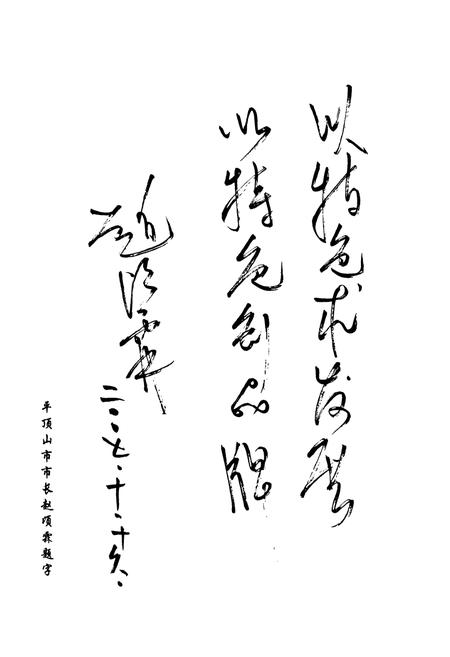 以特色求发展
以特色创品牌
赵顷霖
二〇〇七·十·十九·
平顶山市市长赵顷霖题字